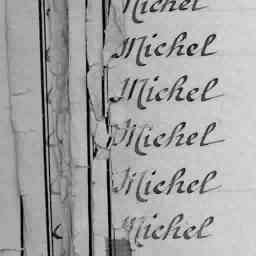 Michel
Michel
Michel
Michel
Michel
Michel